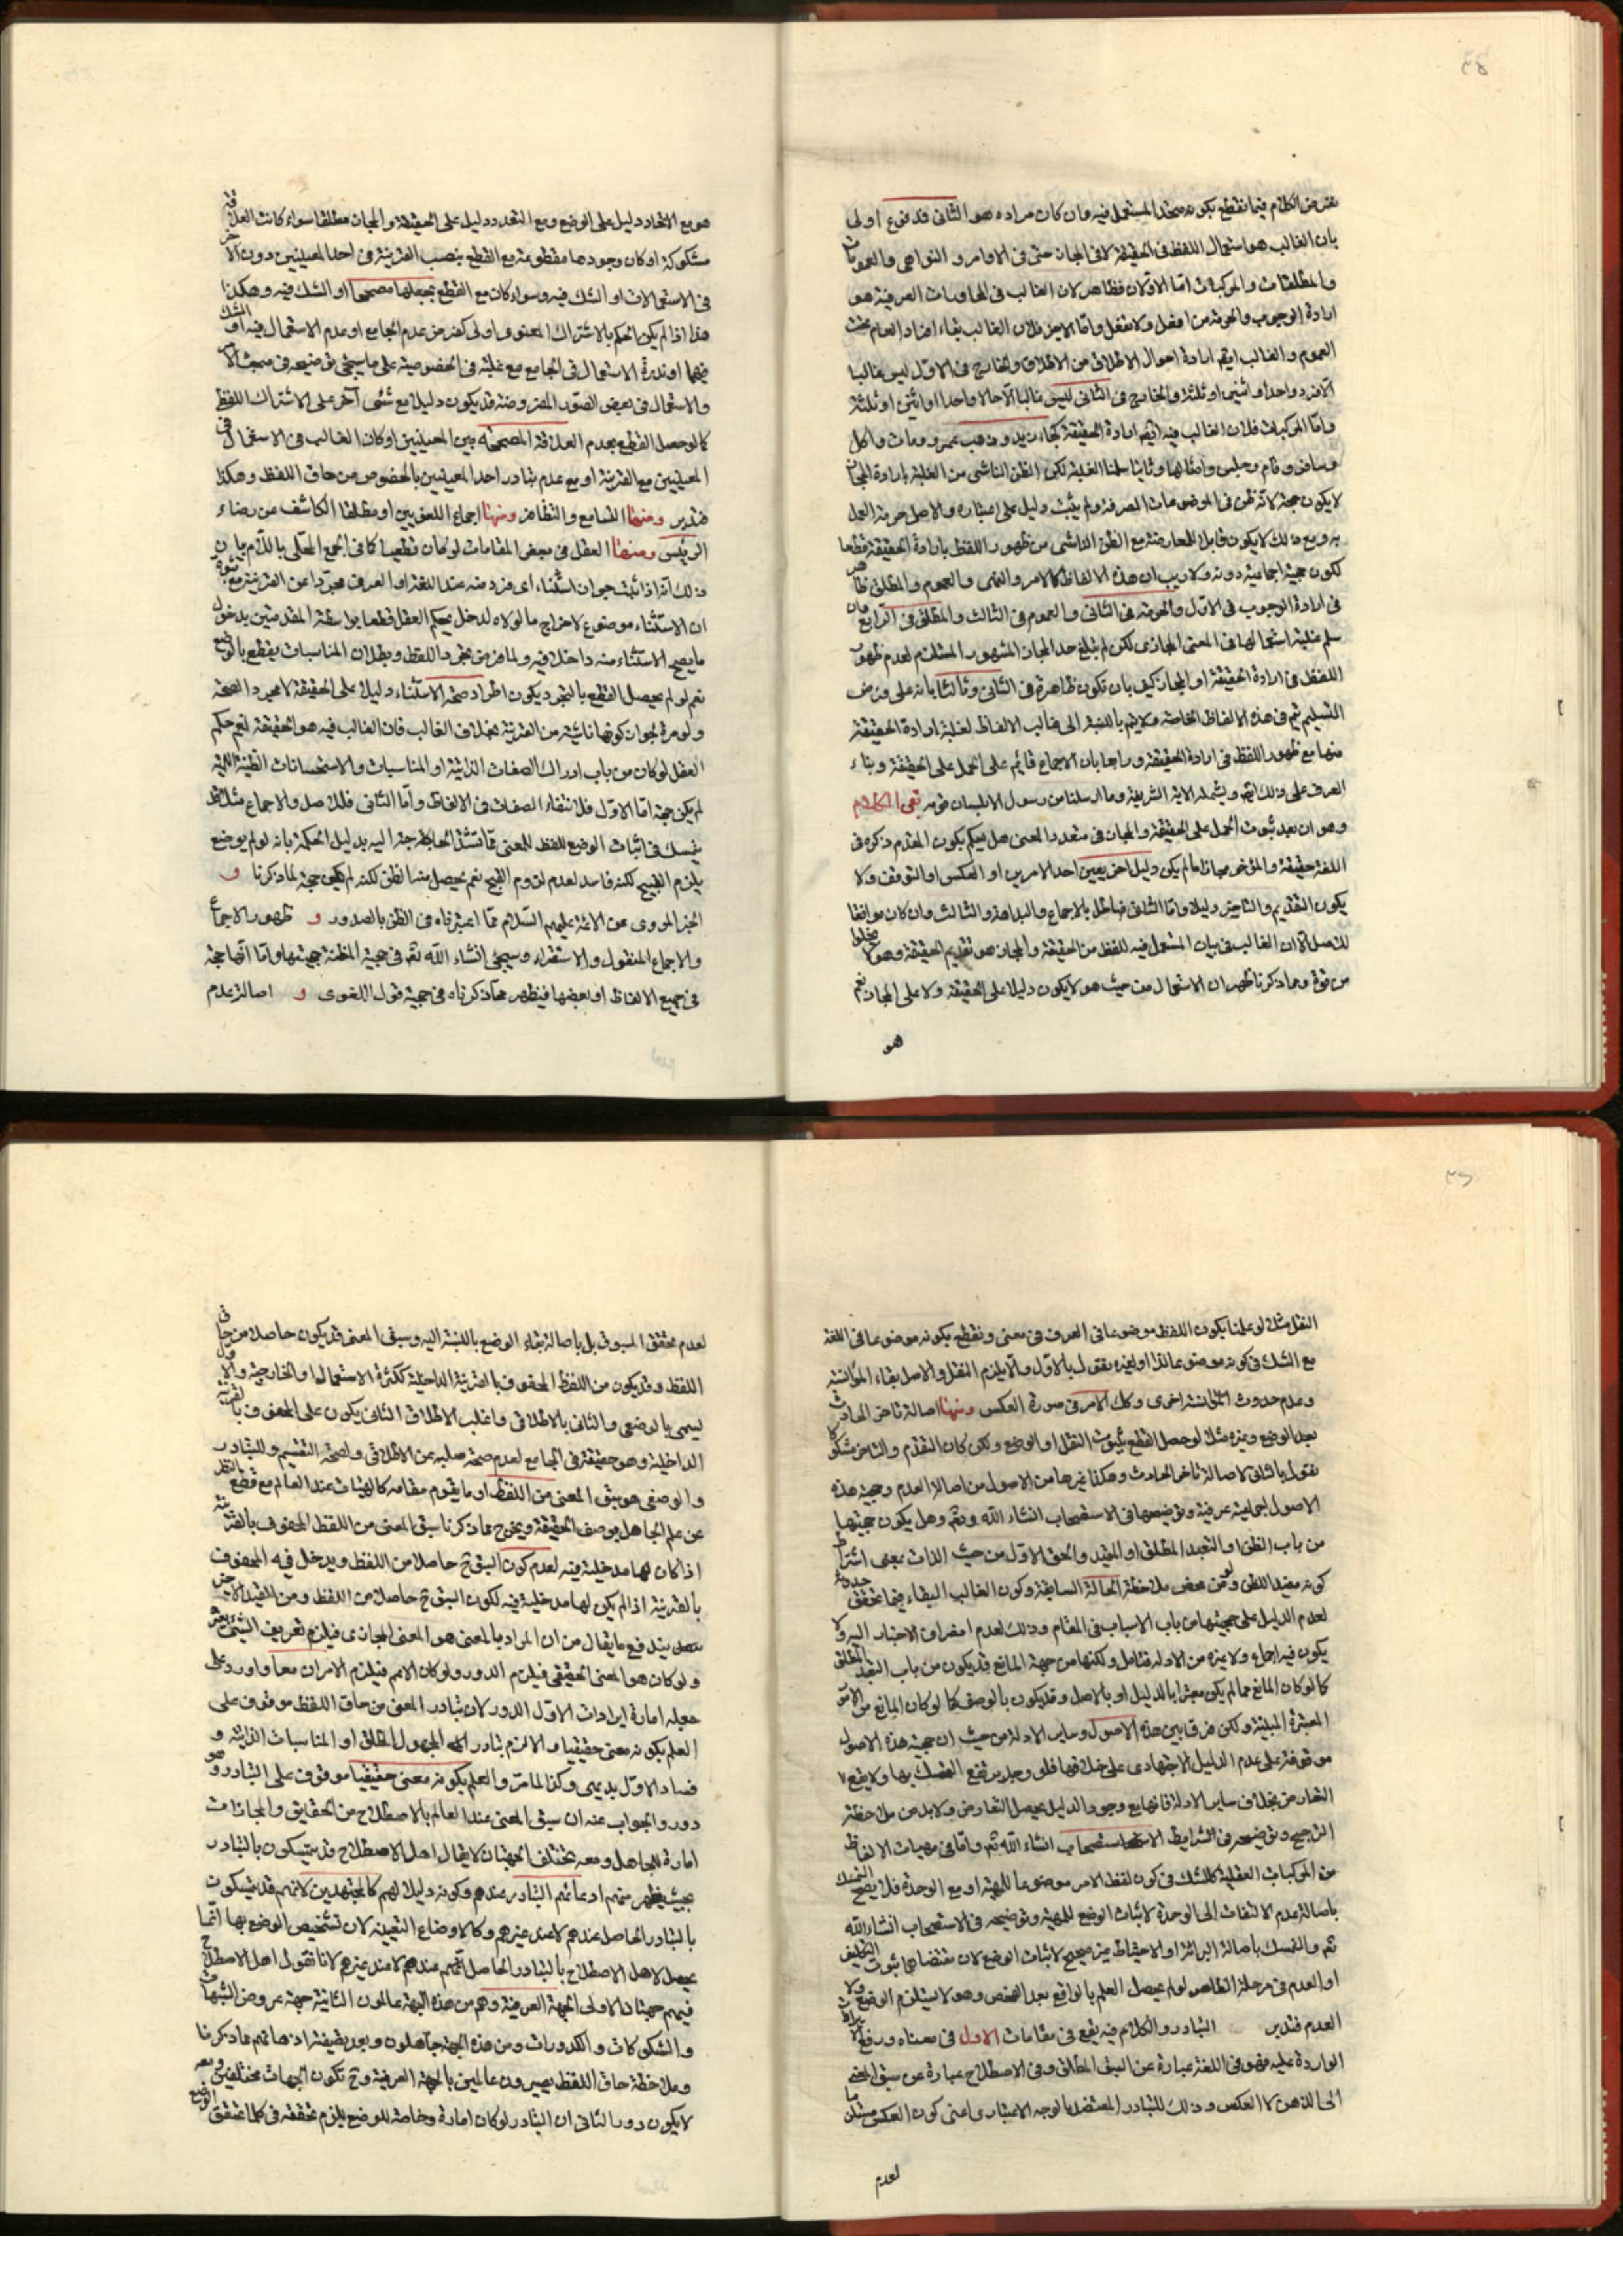 ٣٤
نفرض الكلام فيما نقطع بكونه متحد المستعمل فيه وان كان مراده هو الثانى فمدفوع اولى
بان الغالب هو استعمال اللفظ فى الحقيقة لا فى المجاز حتى فى الاوامر و النواهى والعمومات
والمطلقات والمركبات امّا الاوّلان فظاهر لان الغالب فى المحاورات العرفية هو
ارادة الوجوب والحرمة من افعل ولا تفعل وامّا الاخير فلان الغالب بقاء افراد العام تحت
العموم والغالب ايضا ارادة احوال الاطلاق من الاطلاق والخارج فى الاوّل ليس غالبا
الّا فرد واحد او اثنين او ثلثة والخارج فى الثانى ليس غالبا الّا حالا واحدا او اثنين او ثلثة
وامّا المركبات فلان الغالب فيه ايضا ارادة الحقيقة كجاء زيد و ذهب عمرو ومات واكل
وسافر وقام وجلس وامثالها وثانيا سلمنا الغلبة لكن الظن الناشى من الغلبة بارادة المجاز
لا يكون حجة لانه ظن فى الموضوعات الصرفة ولم يثبت دليل على اعتباره والاصل حرمة العمل
به ومع ذلك لا يكون قابلا للمعارضة مع الظن الناشى من ظهور اللفظ بارادة الحقيقة قطعا
لكون حجية اجماعية دونه ولا ريب ان هذه الالفاظ كالامر والنهى والعموم والمطلق ظاهر
فى ارادة الوجوب فى الاوّل والحرمة فى الثانى والعموم فى الثالث والمطلق فى الرابع وان
سلم غلبة استعمالها فى المعنى المجازى لكن لم يبلغ حد المجاز المشهور المستلزم لعدم ظهور
اللفظ فى ارادة الحقيقة او المجاز كيف بان تكون ظاهرة فى الثانى وثالثا بانه على فرض
التسليم ثم فى هذه الالفاظ الخاصة ولا يتم بالنسبة الى غالب الالفاظ لغلبة ارادة الحقيقة
منها مع ظهور اللفظ فى ارادة الحقيقة ورابعا بان الاجماع قائم على الحمل على الحقيقة وبناء
العرف على ذلك ايضا ويشمله الاية الشريفة وما ارسلنا من رسول الا بلسان قومه بقى الكلام
وهو ان بعد ثبوت الحمل على الحقيقة والمجاز فى متعدد المعنى هل يحكم بكون المقدم ذكره فى
اللغة حقيقة والمؤخر مجازا ما لم يكن دليل اخر يعين احد الامرين او العكس او التوقف ولا
يكون التقديم والتاخير دليلا وامّا الثانى فباطل بالاجماع والبداهة والثالث وان كان موافقا
للاصل الّا ان الغالب فى بيان المستعمل فيه للفظ من الحقيقة والمجاز هو تقديم الحقيقة وهو لا يخلوا
من قوة ومما ذكرنا ظهر ان الاستعمال من حيث هو لا يكون دليلا على الحقيقة ولا على المجاز نعم
هو
هو مع الاتحاد دليل على الوضع ومع التعدد دليل على الحقيقة والمجاز مطلقا سواء كانت العلاقة
مشكوكة او كان وجودها مقطوعة مع القطع بنصب القرينة فى احد المعنيين دون الاخر
فى الاستعمالات او الشك فيه وسواء كان مع القطع بجعلها مصححا او الشك فيه وهكذا
هذا اذا لم يكن الحكم بالاشتراك المعنوى اولى كفرض عدم الجامع او عدم الاستعمال فيه او الشك
فيهما او ندرة الاستعمال فى الجامع مع غلبته فى الخصوصية على ما سيجئ توضيحه فى مبحث الامر
والاستعمال فى بعض الصّور المفروضة قد يكون دليلا مع شئى آخر على الاشتراك اللفظى
كما لو حصل القطع بعدم العلاقة المصححة بين المعنيين او كان الغالب فى الاستعمال فى
المعنيين مع القرينة او مع عدم تبادر احد المعنيين بالخصوص من حاق اللفظ وهكذا
فتدبر ومنها التسامع والتظافر ومنها اجماع اللغويين او مطلقا الكاشف عن رضاء
الرئيس ومنها العقل فى بعض المقامات لو كان قطعيا كما فى الجمع المحلّى باللّام بان
ذلك انّه اذا ثبت جواز استثناء اى فرد منه عند اللغة او العرف مجرّدا عن القرينة مع ثبوت
ان الاستثناء موضوع لاخراج ما لولاه لدخل يحكم العقل قطعا بواسطة المقدمتين بدخول
ما يصح الاستثناء منه داخلا فيه ولما فرض تجرد اللفظ وبطلان المناسبات يقطع بالوضع
نعم لو لم يحصل القطع بالتجرد يكون اطراد صحة الاستثناء دليلا على الحقيقة لا مجرد الصحة
ولو مرة لجواز كونها ناشئة من القرينة بخلاف الغالب فان الغالب فيه هو الحقيقة نعم حكم
العقل لو كان من باب ادراك الصفات الذاتية او المناسبات والاستحسانات الظنية اللبية
لم يكن حجة امّا الاوّل فلانتفاء الصفات فى الالفاظ وامّا الثانى فللاصل والاجماع مثلا قد
يتمسك فى اثبات الوضع للفظ للمعنى ممّا تشتدّ الحاجة اليه بدليل الحكمة بانه لو لم يوضع
يلزم القبيح لكنه فاسد لعدم لزوم القبيح نعم يحصل منها لظن لكنه لم يكن حجة لما ذكرنا و
الخبر المروى عن الائمة عليهم السّلام ممّا اعتبرناه من الظن بالصدور و ظهور الاجماع
والاجماع المنقول والاستقراء وسيجئ انشاء الله تعم فى حجية المظنة حجيتها وامّا انها حجة
فى جميع الالفاظ او بعضها فيظهر ممّا ذكرناه فى حجية قول اللغوى و اصالة عدم
٣٥
النقل مثلا لو علمنا بكون اللفظ موضوعا فى العرف فى معنى ونقطع بكونه موضوعا فى اللغة
مع الشك فى كونه موضوعا لذا او لغيره نقول بالاوّل والّا يلزم النقل والاصل بقاء المؤانسة
وعدم حدوث المؤانسة اخرى وكك الامر فى صورة العكس ومنها اصالة تاخر الحادث
بعد الوضع وغيره مثلا لو حصل القطع بثبوت النقل او الوضع ولكن كان التقدم والتاخر مشكوكا
نقول بالثانى لاصالة تاخر الحادث وهكذا غيرها من الاصول من اصالة العدم وحجية هذه
الاصول اجماعية عرفية وتوضيحها فى الاستصحاب انشاء الله وتعم وهل يكون حجيتها
من باب الظن او التعبد المطلق او المقيد والحق الاوّل من حيث الذات بمعنى اشتراط
كونه مفيد الظن ولو من محض ملاحظة الحالة السابقة وكون الغالب البقاء فيما تحقق حدوثه
لعدم الدليل على حجيتها من باب الاسباب فى المقام وذلك لعدم انصراف الاخبار اليه ولا
يكون فيه اجماع ولا غيره من الادلة فتامل ولكنها من جهة المانع قد يكون من باب التعبد المطلق
كما لو كان المانع مما لم يكن معتبرا بالدليل او بالاصل وقد يكون بالوصف كما لو كان المانع من الامور
المعتبرة المبنية ولكن فرق ما بين هذه الاصول وساير الادلة من حيث ان حجية هذه الاصول
موقوفة على عدم الدليل الاجتهادى على خلافها فلو وجد يرتفع التمسك بها ولا يقع
التعارض بخلاف ساير الادلة فانها مع وجود الدليل يحصل التعارض ولا بد من ملاحظة
الترجيح وتوضيحه فى الشرايط الاستصحاب انشاء الله تعم وامّا فى مهيات الالفاظ
من المركبات العقلية كالشك فى كون لفظ الامر موضوعا للمهية او مع الوحدة فلا يصح التمسك
باصالة عدم الالتفات الى الوحدة لاثبات الوضع للمهية وتوضيحه فى الاستصحاب انشاء الله
تعم والتمسك باصالة البرائة او الاحتياط غير صحيح لاثبات الوضع لان مقتضاها ثبوت التكليف
او العدم فى مرحلة الظاهر لو لم يحصل العلم بالواقع بعد الفحص وهو لا يستلزم الوضع ولا
العدم فتدبر التبادر والكلام فيه يقع فى مقامات الاول فى معناه ورفع الايرادات
الواردة عليه فهو فى اللغة عبارة عن السبق المطلق وفى الاصطلاح عبارة عن سبق المعنى
الى الذهن لا العكس وذلك للتبادر المعتضد بالوجه الاعتبارى اعنى كون العكس مستلزما
لعدم
لعدم تحقق المسبوق بل باصالة بقاء الوضع بالنسبة اليه وسبق المعنى قد يكون حاصلا من حاق
اللفظ وقد يكون من اللفظ المحفوف بالقرينة الداخلية ككثرة الاستعمال او الخارجية والاول
ليسمى بالوضعى والثانى بالاطلاقى واغلب الاطلاق الثانى يكون على المحفوف بالقرينة
الداخلية وهو حقيقة فى الجامع لعدم صحة سلبه عن الاطلاقى ولصحة التقسيم وللتبادر
والوصفى هو سبق المعنى من اللفظ او ما يقوم مقامه كالهيئات عند العالم مع قطع النظر
عن علم الجاهل بوصف الحقيقة ويخرج مما ذكرنا سبق المعنى من اللفظ المحفوف بالقرينة
اذا كان لها مدخلية فيه لعدم كون السبق ح حاصلا من اللفظ ويدخل فيه المحفوف
بالقرينة اذا لم يكن لها مدخلية فيه لكون السبق ح حاصلا من اللفظ ومن القيد الاخير
يندفع ما يقال من ان المراد بالمعنى هو المعنى المجازى فيلزم تعريف الشئى بغيره
ولو كان هو المعنى الحقيقى فيلزم الدور ولو كان الاعم فيلزم الامران معا واورد على
جعله امارة ايرادات الاوّل الدور لان تبادر المعنى من حاق اللفظ موقوف على
العلم بكونه معنى حقيقيا والا لزم تبادر المجهول المطلق او المناسبات الذاتية و
فساد الاوّل بديهى وكذا لما مرّ والعلم بكونه معنى حقيقيا موقوف على التبادر وهو
دور والجواب عنه ان سبق المعنى عند العالم بالاصطلاح من الحقايق والمجازات
امارة للجاهل ومعه يختلف الجهتان لا يقال اهل الاصطلاح قد يتمسكون بالتبادر
بحيث يظهر منهم ادعائهم التبادر عندهم وكونه دليلا لهم كالمجتهدين لانهم قد يتمسكون
بالتبادر الحاصل عندهم لا عند غيرهم وكالاوضاع التعيينية لان تشخيص الوضع بها انّما
يحصل لاهل الاصطلاح بالتبادر الحاصل عندهم لا عند غيرهم لانا نقول اهل الاصطلاح
فيهم جهتان الاولى الجهة العرفية وهم من هذه الجهة عالمون الثانية جهة عروض الشبهات
والشكوكات والكدورات ومن هذه الجهة جاهلون وبعد تصفية اذهانهم عما ذكرنا
وملاحظة حاق اللفظ يصيرون عالمين بالجهة العرفية وح تكون الجهات مختلفين ومعه
لا يكون دور الثانى ان التبادر لو كان امارة وخاصة للوضع يلزم تحققه فى كلما تحقق الوضع